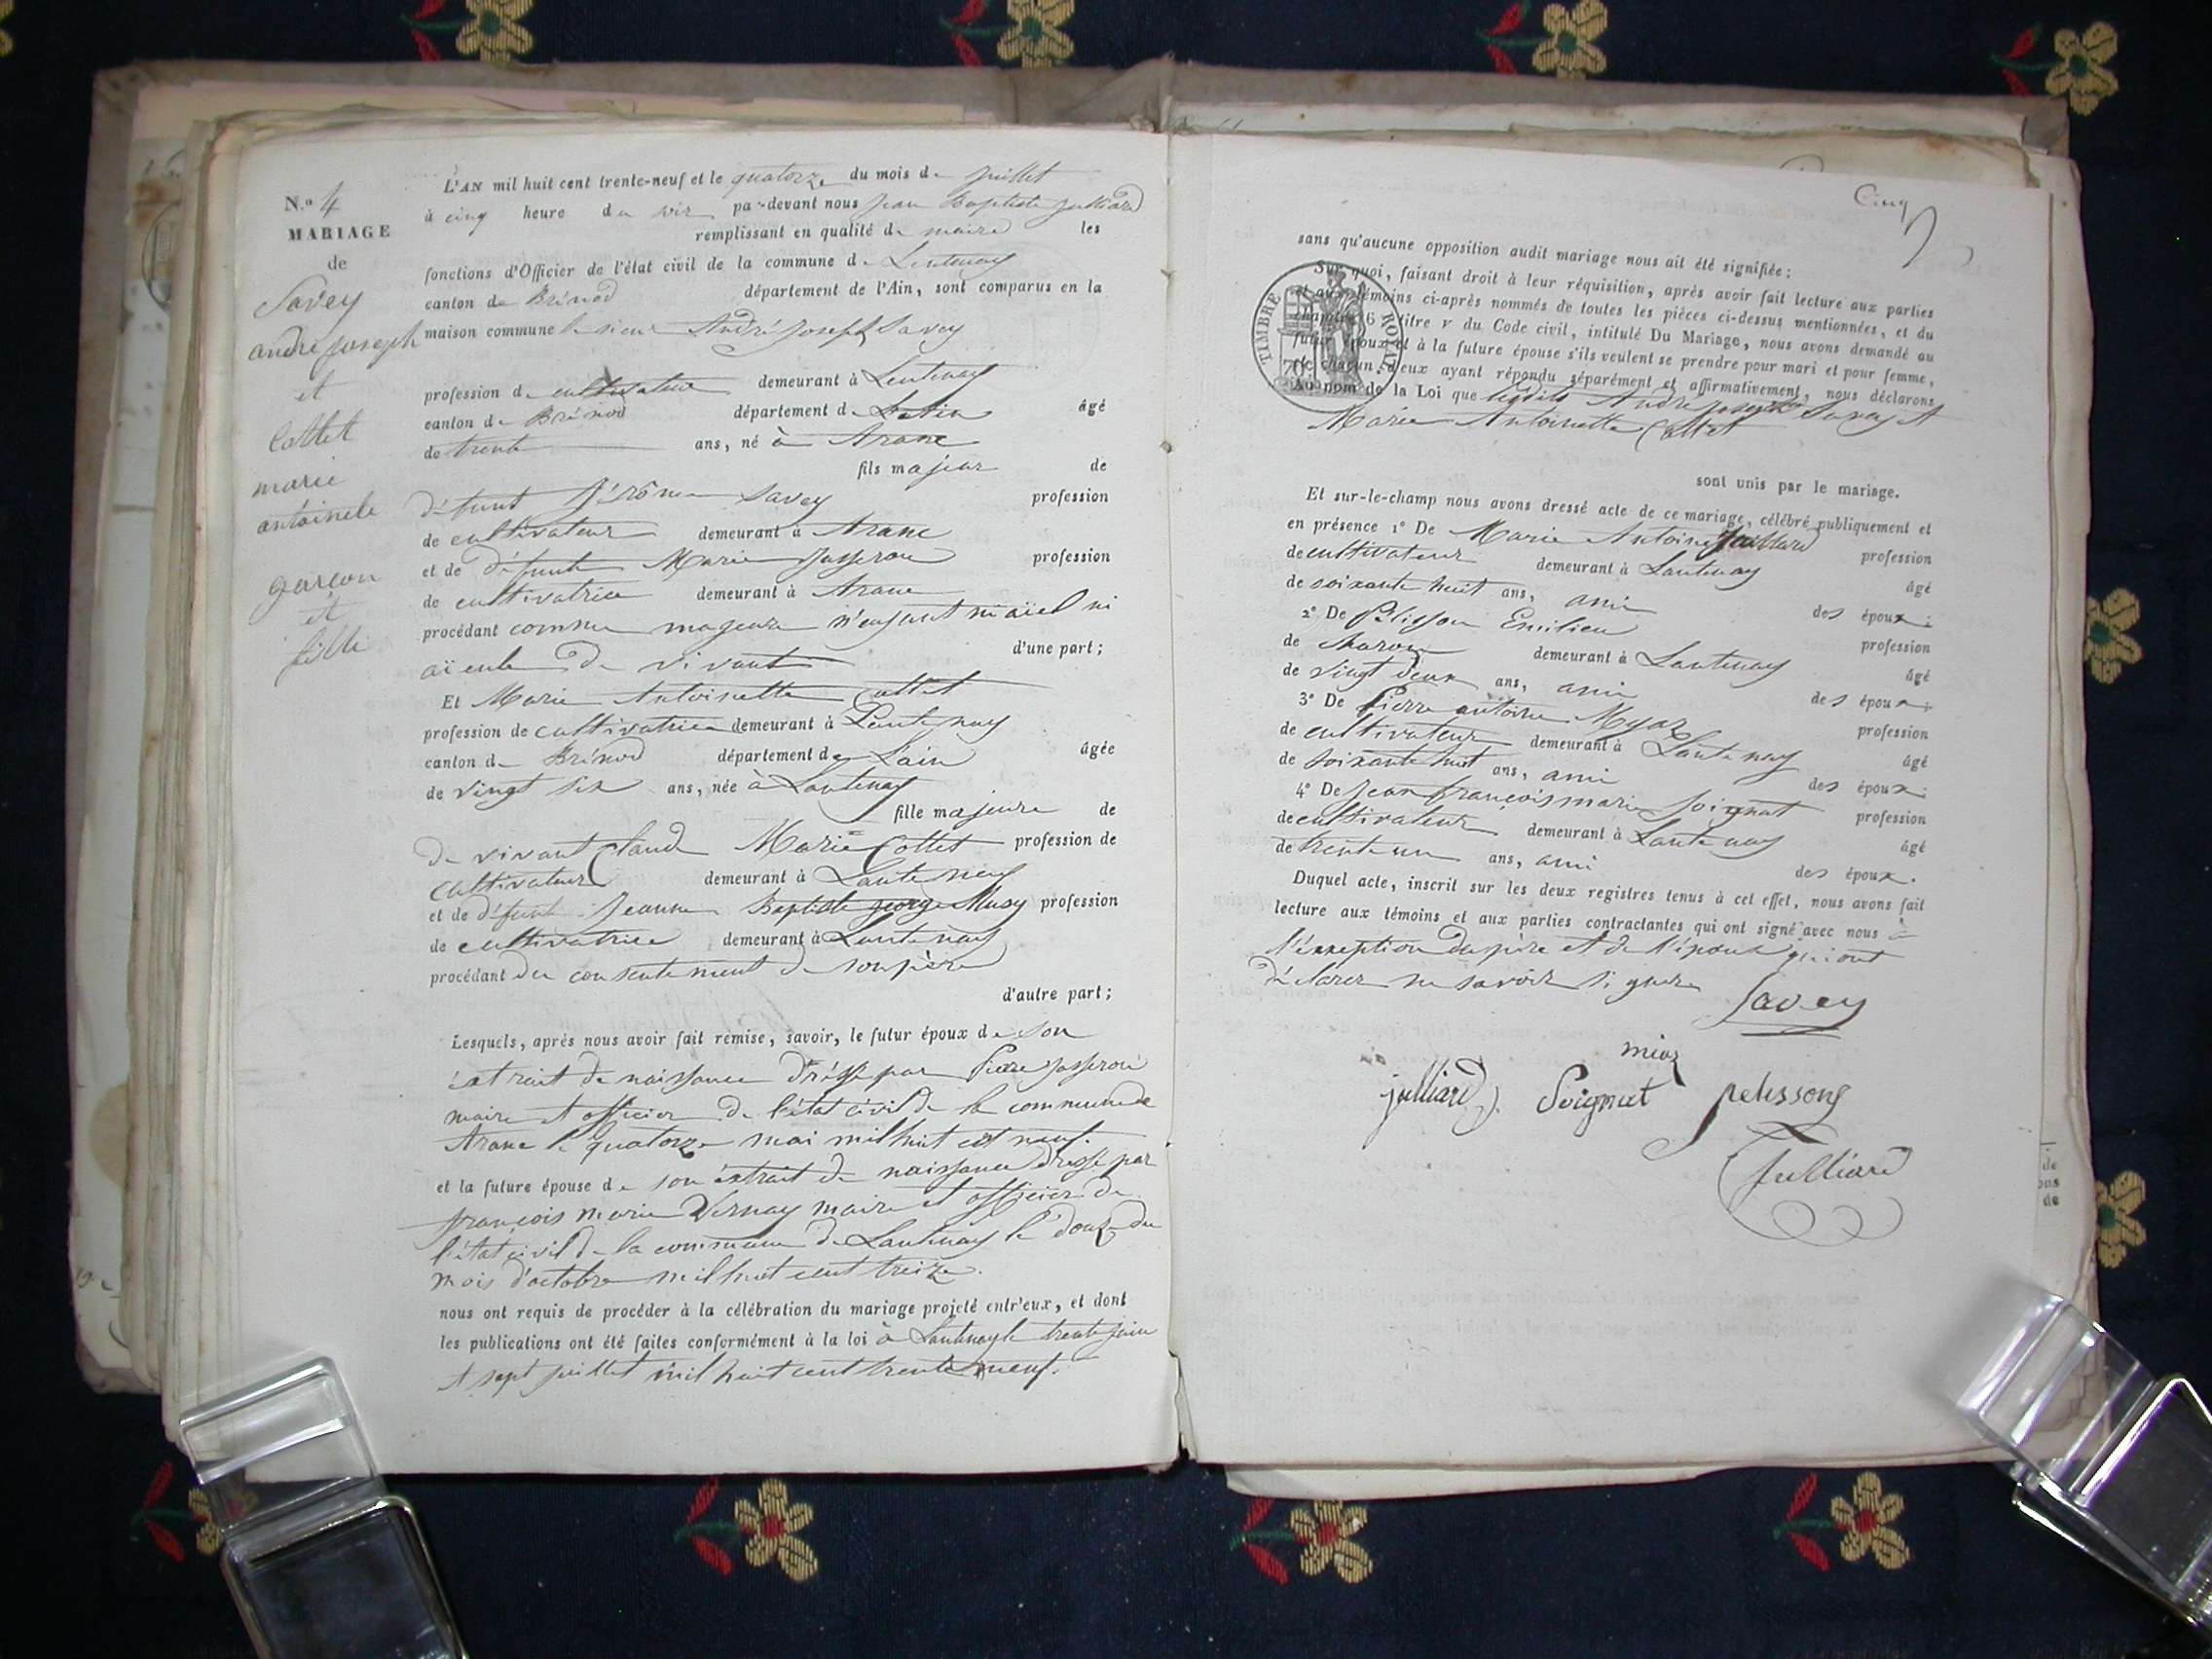 N.o 4
MARIAGE
de
Savey
andré joseph
et
Collet
marie
antoinete
garçon
et
fille
L'AN mil huit cent trente-neuf et le quatorze du mois de juillet
à cinq heure du soir par-devant nous Jean Baptiste Julliard
remplissant en qualité de maire les
fonctions d'Officier de l'état civil de la commune de Lentenay
canton de Brénod département de l'Ain, sont comparus en la
maison commune le sieur André Joseph Savey
profession de cultivateur demeurant à Lentenay
canton de Brénod département de Lain âgé
de trente ans, né à Aranc
fils majeur de
défunt Jérôme Savey profession
de cultivateur demeurant à Aranc
et de défunte Marie Josserou profession
de cultivatrice demeurant à Aranc
procédant comme mageure n'eusant ni aïel ni
aïeule de vivant d'une part;
Et Marie Antoinette Collet
profession de cultivatrice demeurant à Lentenay
canton de Brénod département de Lain âgée
de vingt six ans, née à Lantenay
fille majeure de
de vivant Claude Marie Collet profession de
cultivateur demeurant à Lantenay
et de défunte Jeanne Baptiste george Musy profession
de cultivatrice demeurant à Lantenay
procédant du consentement de son père
d'autre part;
Lesquels, après nous avoir fait remise, savoir, le futur époux de son
extrait de naissance dréssé par Pierre Josserou
maire et officier de l'état civil de la commune de
Aranc le quatorze mai mil huit cent neuf.
et la future épouse de son extrait de naissance dressé par
françois marie Vernay maire et officier de
l'état civil de la commune de Lantenay le douze du
mois d'octobre mil huit cent treize.
nous ont requis de procéder à la célébration du mariage projeté entr'eux, et dont
les publications ont été faites conformément à la loi à Lantenay le trente juin
et sept juillet mil huit cent trente neuf.
Cinq
sans qu'aucune opposition audit mariage nous ait été signifiée;
Sur quoi, faisant droit à leur réquisition, après avoir fait lecture aux parties
et aux témoins ci-après nommés de toutes les pièces ci-dessus mentionnées, et du
chapitre 6 titre v du Code civil, intitulé Du Mariage, nous avons demandé au
futur époux et à la future épouse s'ils veulent se prendre pour mari et pour femme,
et chacun d'eux ayant répondu séparément et affirmativement, nous déclarons
Au nom de la Loi que lesdits André joseph Savey et
TIMBRE ROYAL
Marie Antoinette Collet
sont unis par le mariage.
Et sur-le-champ nous avons dressé acte de ce mariage, célébré publiquement et
en présence 1° De Marie Antoine Juillard profession
de cultivateur demeurant à Lantenay âgé
de soixante huit ans, ami des époux;
2° De Pelisson Emilien profession
de Charon demeurant à Lantenay âgé
de vingt deux ans, ami des époux;
3° De Pierre antoine Myoz profession
de cultivateur demeurant à Lantenay âgé
de soixante huit ans, ami des époux;
4° De Jean françois marie Soignat profession
de cultivateur demeurant à Lantenay âgé
de trente un ans, ami des époux.
Duquel acte, inscrit sur les deux registres tenus à cet effet, nous avons fait
lecture aux témoins et aux parties contractantes qui ont signé avec nous à
l'exception du père et de l'épouse qui ont
déclarer ne savoir signer
Savey
mioz
julliard Soignat pelissong
Julliard